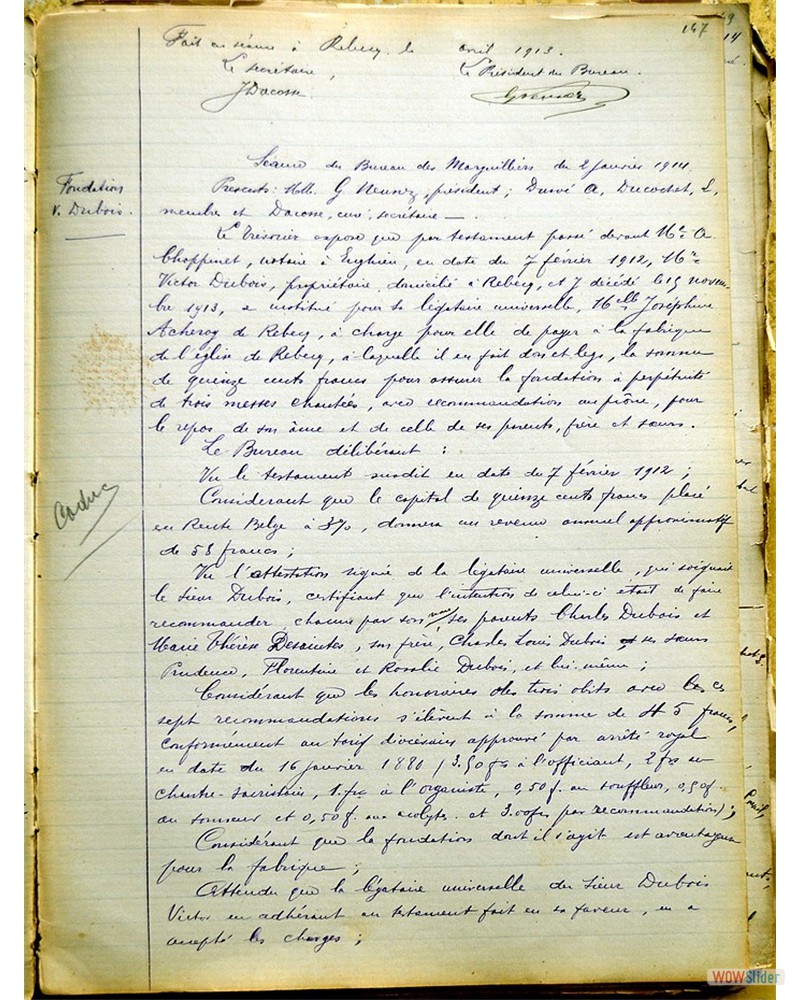 147
Fait en séance à Rebecq, le avril 1913.
Le secrétaire, Le Président du Bureau.
J Dacosse
14
Séance du Bureau des Marguilliers du 2 janvier 1914.
Fondation
V. Dubois.
Présents: MM. G président; A, Ducochet, L,
membre et Dacosse, curé, secrétaire —.
Le Trésorier expose que par testament passé devant Me A
Choppinet, notaire à Enghien, en date du 7 février 1912, Mr
Victor Dubois, propriétaire, domicilié à Rebecq, et y décédé le 15 novem-
bre 1913, a institué pour sa légataire universelle, Melle Joséphine
de Rebecq, à charge pour elle de payer à la fabrique
de l'église de Rebecq, à laquelle il en fait don et legs, la somme
de quinze cents francs pour assurer la fondation à perpétuité
de trois messes chantées, avec recommandation au prône, pour
le repos de son âme et de celle de ses parents, frère et sœurs.
Le Bureau délibérant :
Vu le testament susdit en date du 7 février 1912 ;
Considérant que le capital de quinze cents francs placé
en Rente Belge à 3%, donnera un revenu annuel approximatif
de 58 francs ;
Caduc
Vu l'attestation signée de la légataire universelle, qui soignait
le sieur Dubois, certifiant que l'intention de celui-ci était de faire
recommander, chacun par son nom ses parents Charles Dubois et
Marie Thérèse Desaintes, son frère, Charles Louis Dubois et ses sœurs
Prudence, Florentine et Rosalie Dubois, et lui-même ;
Considérant que les honoraires des trois obits avec les
sept recommandations s'élèvent à la somme de francs,
conformément au tarif diocésain approuvé par arrêté royal
en date du 16 janvier 1880 / 3.50 frs à l'officiant, 2 frs au
chantre-sacristain, 1 fr à l'organiste, 0,50 f. au souffleur, 0,50 f.
au sonneur et 0,50 f. aux acolytes. et 3.00 frs par recommandation) ;
Considérant que la fondation dont il s'agit est avantageuse
pour la fabrique ;
Attendu que la légataire universelle du sieur Dubois
Victor en adhérant au testament fait en sa faveur, en a
accepté les charges ;
WOWSlider